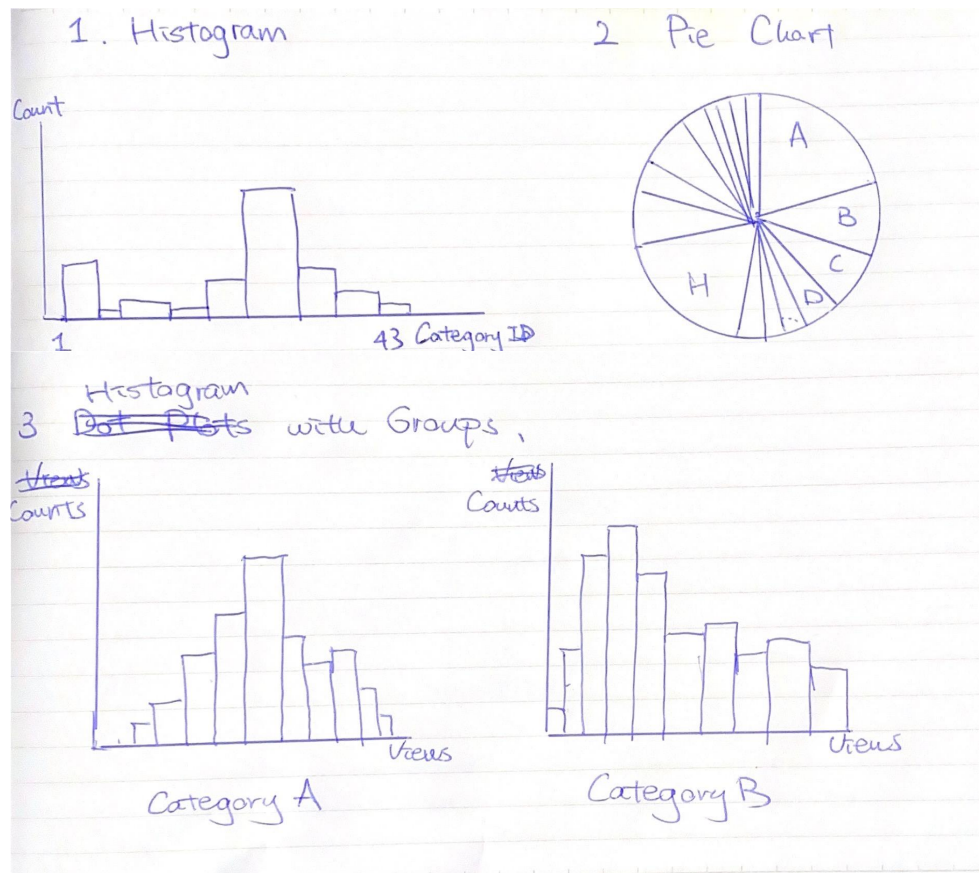 1. Histogram
2 Pie Chart
Count
A
B
C
D
...
H
1
43 Category ID
Histogram
3 Dot Plots with Groups,
Views
Counts
Views
Category A
Views
Counts
Views
Category B